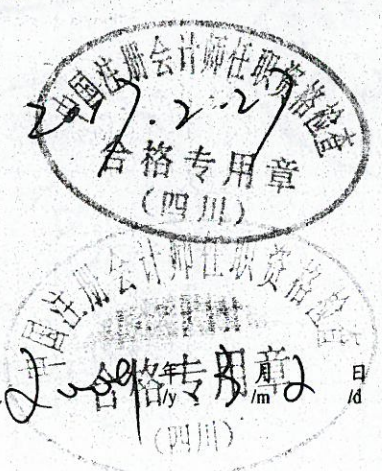 中国注册会计师任职资格检查
2017.2.27
合格专用章
(四川)
中国注册会计师任职资格检查
合格专用章
2009年3月2日
/y /m /d
(四川)